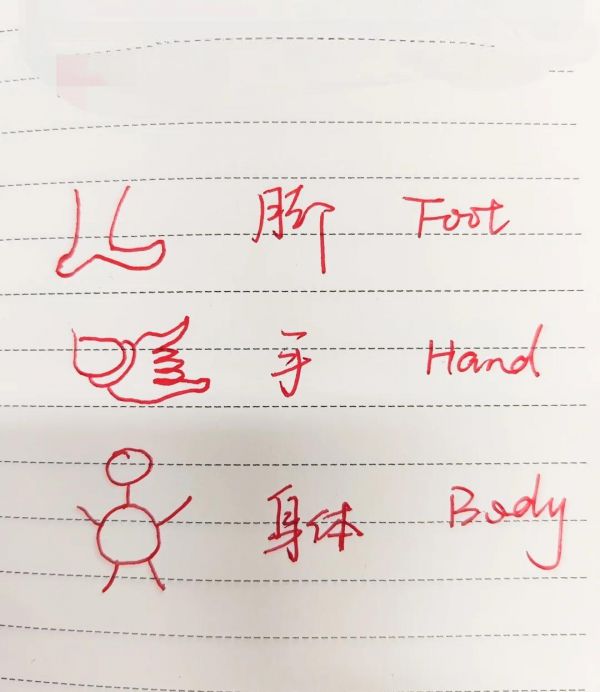 脚 Foot
手 Hand
身体 Body